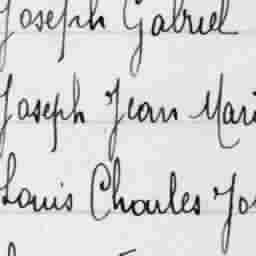 Joseph Gabriel
Joseph Jean Mari
Louis Charles Jos